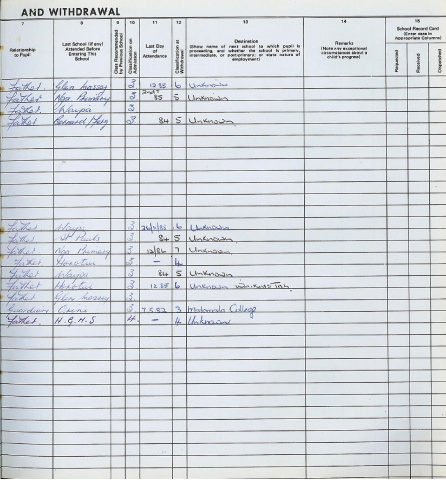 AND WITHDRAWAL
7 8 9 10 11 12 13 14 15
Relationship to Pupil
Last School (if any) Attended Before Entering This School
Class Recommended by Previous School
Classification on Admission
Last Day of Attendance
Classification at Withdrawal
Destination
(Show name of next school to which pupil is proceeding, and whether the school is primary, intermediate, or post-primary; or state nature of employment)
Remarks
(Note any exceptional circumstances about a child's progress)
School Record Card
(Enter date in Appropriate Columns)
Requested
Received
Dispatched
Father Glen Massey 3 12 85 6 Unknown
Father Nga Primary 3 85 5 Unknown
Father Waipa 3
Father Bernard 3 84 5 Unknown
Father Waipa 3 85 6 Unknown
Father St Pauls 3 84 5 Unknown
Father Nga Primary 3 12/86 7 Unknown
Father Horotiu 3 - 4
Father Waipa 3 84 5 Unknown
Father Horotiu 3 12 85 6 Unknown
Father Glen Massey 3
Guardians 3 7.5.82 3 Matamata College
Father H.G.H.S 4 - 4 Unknown